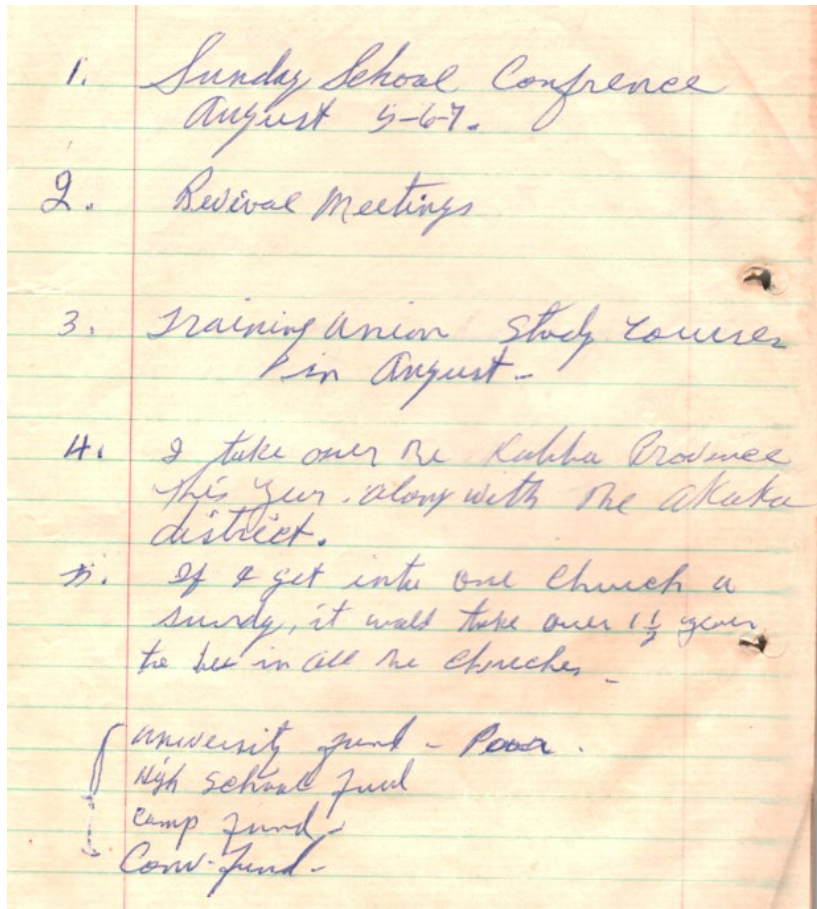 1. Sunday School Confrence
August 5-6-7.
2. Revival Meetings
3. Training Union Study Courses
in August -
4. I take over the Kabba Province
this year. along with the akoko
district.
5. If I get into one Church a
sunday, it would take over 1½ years
to be in all the churches -
University fund - Poor.
High School fund
Camp fund -
Conv - fund -